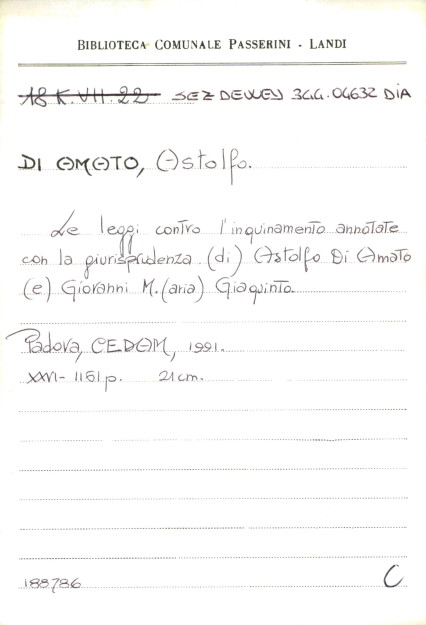 BIBLIOTECA COMUNALE PASSERINI - LANDI
18 K. VII. 22 SEZ DEWEY 344.04632 DIA
DI AMATO, Astolfo.
Le leggi contro l'inquinamento annotate
con la giurisprudenza (di) Astolfo Di Amato
(e) Giovanni M.(aria) Giaquinto.
Padova, CEDAM, 1991.
XXVI- 1151 p. 21 cm.
188786 C